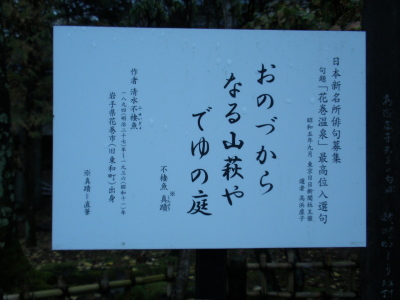 日本新名所俳句募集
句題「花巻温泉」最高位入選句
昭和五年九月 東京日日新聞社主催
選者 高浜虚子
おのづから
なる山萩や
でゆの庭
不棲魚 真蹟※
作者 清水不棲魚
(一八九四(明治二十七)年〜一九三六(昭和十一)年
岩手県花巻市(旧東和町)出身
※真蹟=直筆